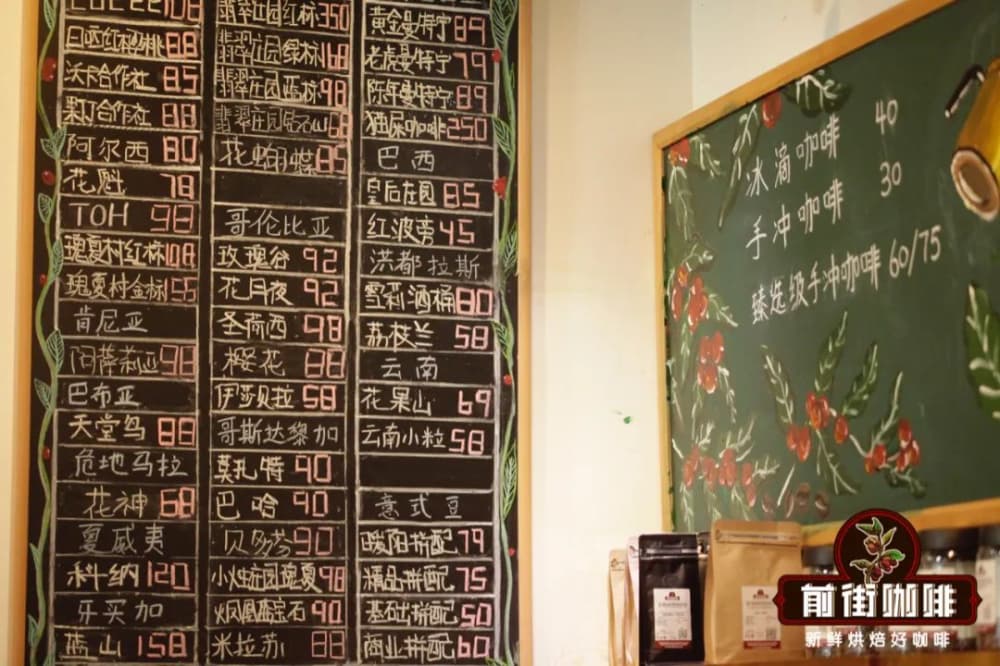 108
日晒红樱桃 88
沃卡合作社 85
果丁合作社 88
阿尔西 80
花魁 78
TOH 98
瑰夏村红标 108
瑰夏村金标 155
肯尼亚
阳莎莉亚 98
巴布亚
天堂鸟 88
危地马拉
花神 68
夏威夷
科纳 120
牙买加
蓝山 158
翡翠庄园红标 350
翡翠庄园绿标 168
翡翠庄园蓝标 98
翡翠庄园钻石山 68
花蝴蝶 85
哥伦比亚
玫瑰谷 92
花月夜 92
圣荷西 98
樱花 88
伊莎贝拉 58
哥斯达黎加
莫扎特 90
巴哈 90
贝多芬 90
小烛庄园瑰夏 98
火凤凰蓝宝石 90
米拉苏 88
黄金曼特宁 89
老虎曼特宁 79
陈年曼特宁 89
猫屎咖啡 250
巴西
皇后庄园 85
红波旁 45
洪都拉斯
雪莉酒桶 80
荔枝兰 58
云南
花果山 69
云南小粒 58
意式豆
暖阳拼配 79
精品拼配 75
基础拼配 50
商业拼配 60
冰滴咖啡 40
手冲咖啡 30
臻选级手冲咖啡 60/75
前街咖啡
新鲜烘焙好咖啡